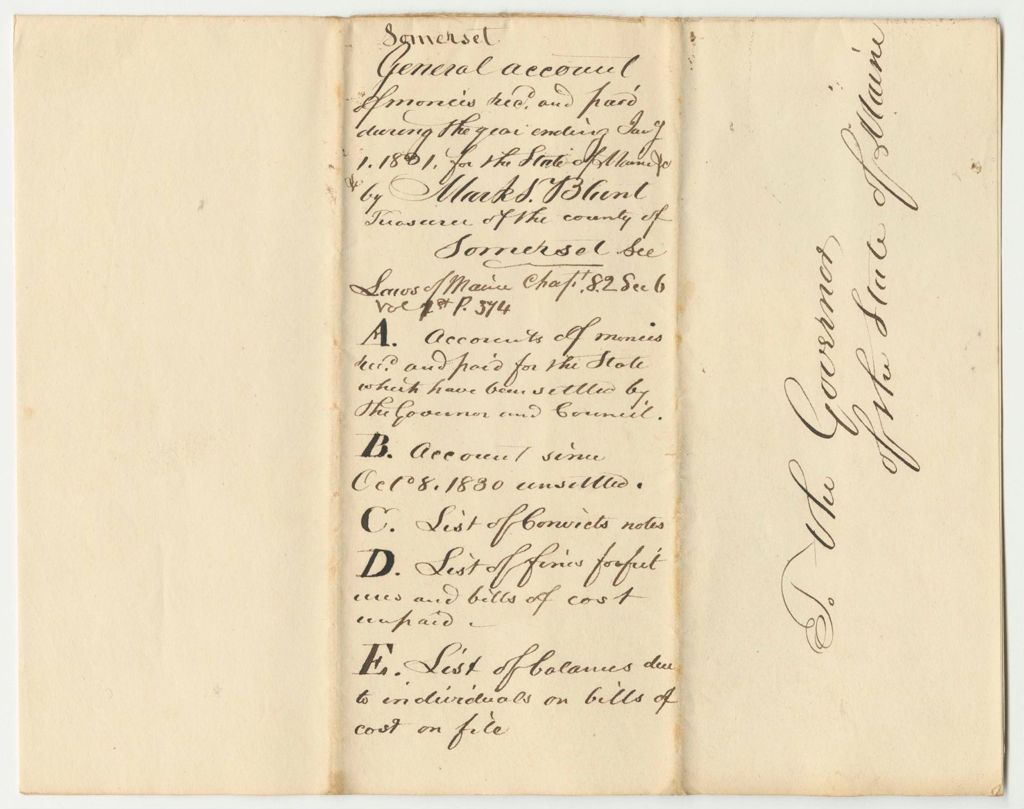 Somerset
General account
of monies rec.d and paid
during the year ending Jan.y
1. 1831, for the State of Maine &c
by Mark S. Blunt
Treasurer of the county of
Somerset See
Laws of Maine Chap.t 82 Sec 6
Vol 1st P. 374
A. Accounts of monies
rec.d and paid for the State
which have been settled by
the Governor and Council.
B. Account since
Oct.o 8. 1830 unsettled.
C. List of Convicts notes
D. List of fines forfeit
ures and bills of cost
unpaid -
E. List of balances due
to individuals on bills of
cost on file
To the Governor
of the State of Maine